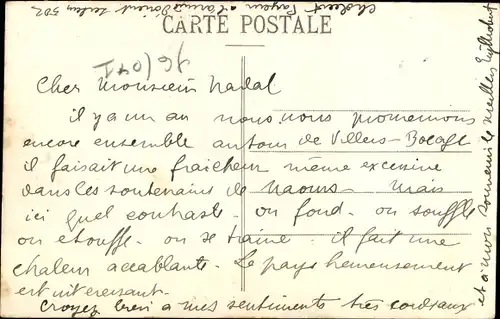 CARTE POSTALE
Cher Monsieur Nadal
il y a un an nous nous promenions
encore ensemble autour de Villers-Bocage
il faisait une fraicheur même excessive
dans les souterrains de Naours - Mais
ici quel contraste - on fond - on souffle
on etouffe - on se traine - il fait une
chaleur accablante - Le pays heureusement
est interessant.
Croyez bien a mes sentiments très cordiaux
et à mon souvenir le meilleur